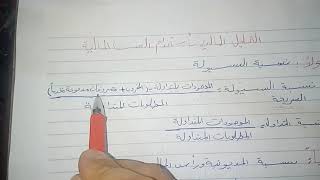 التحليل المالي باستخدام النسب المالية
نسبة السيولة
نسبة السيولة = الموجودات المتداولة - (المخزون + مصروفات مدفوعة مقدماً)
السريعة المطلوبات المتداولة
نسبة التداول = الموجودات المتداولة
المطلوبات المتداولة
نسبة المديونية ورأس المال